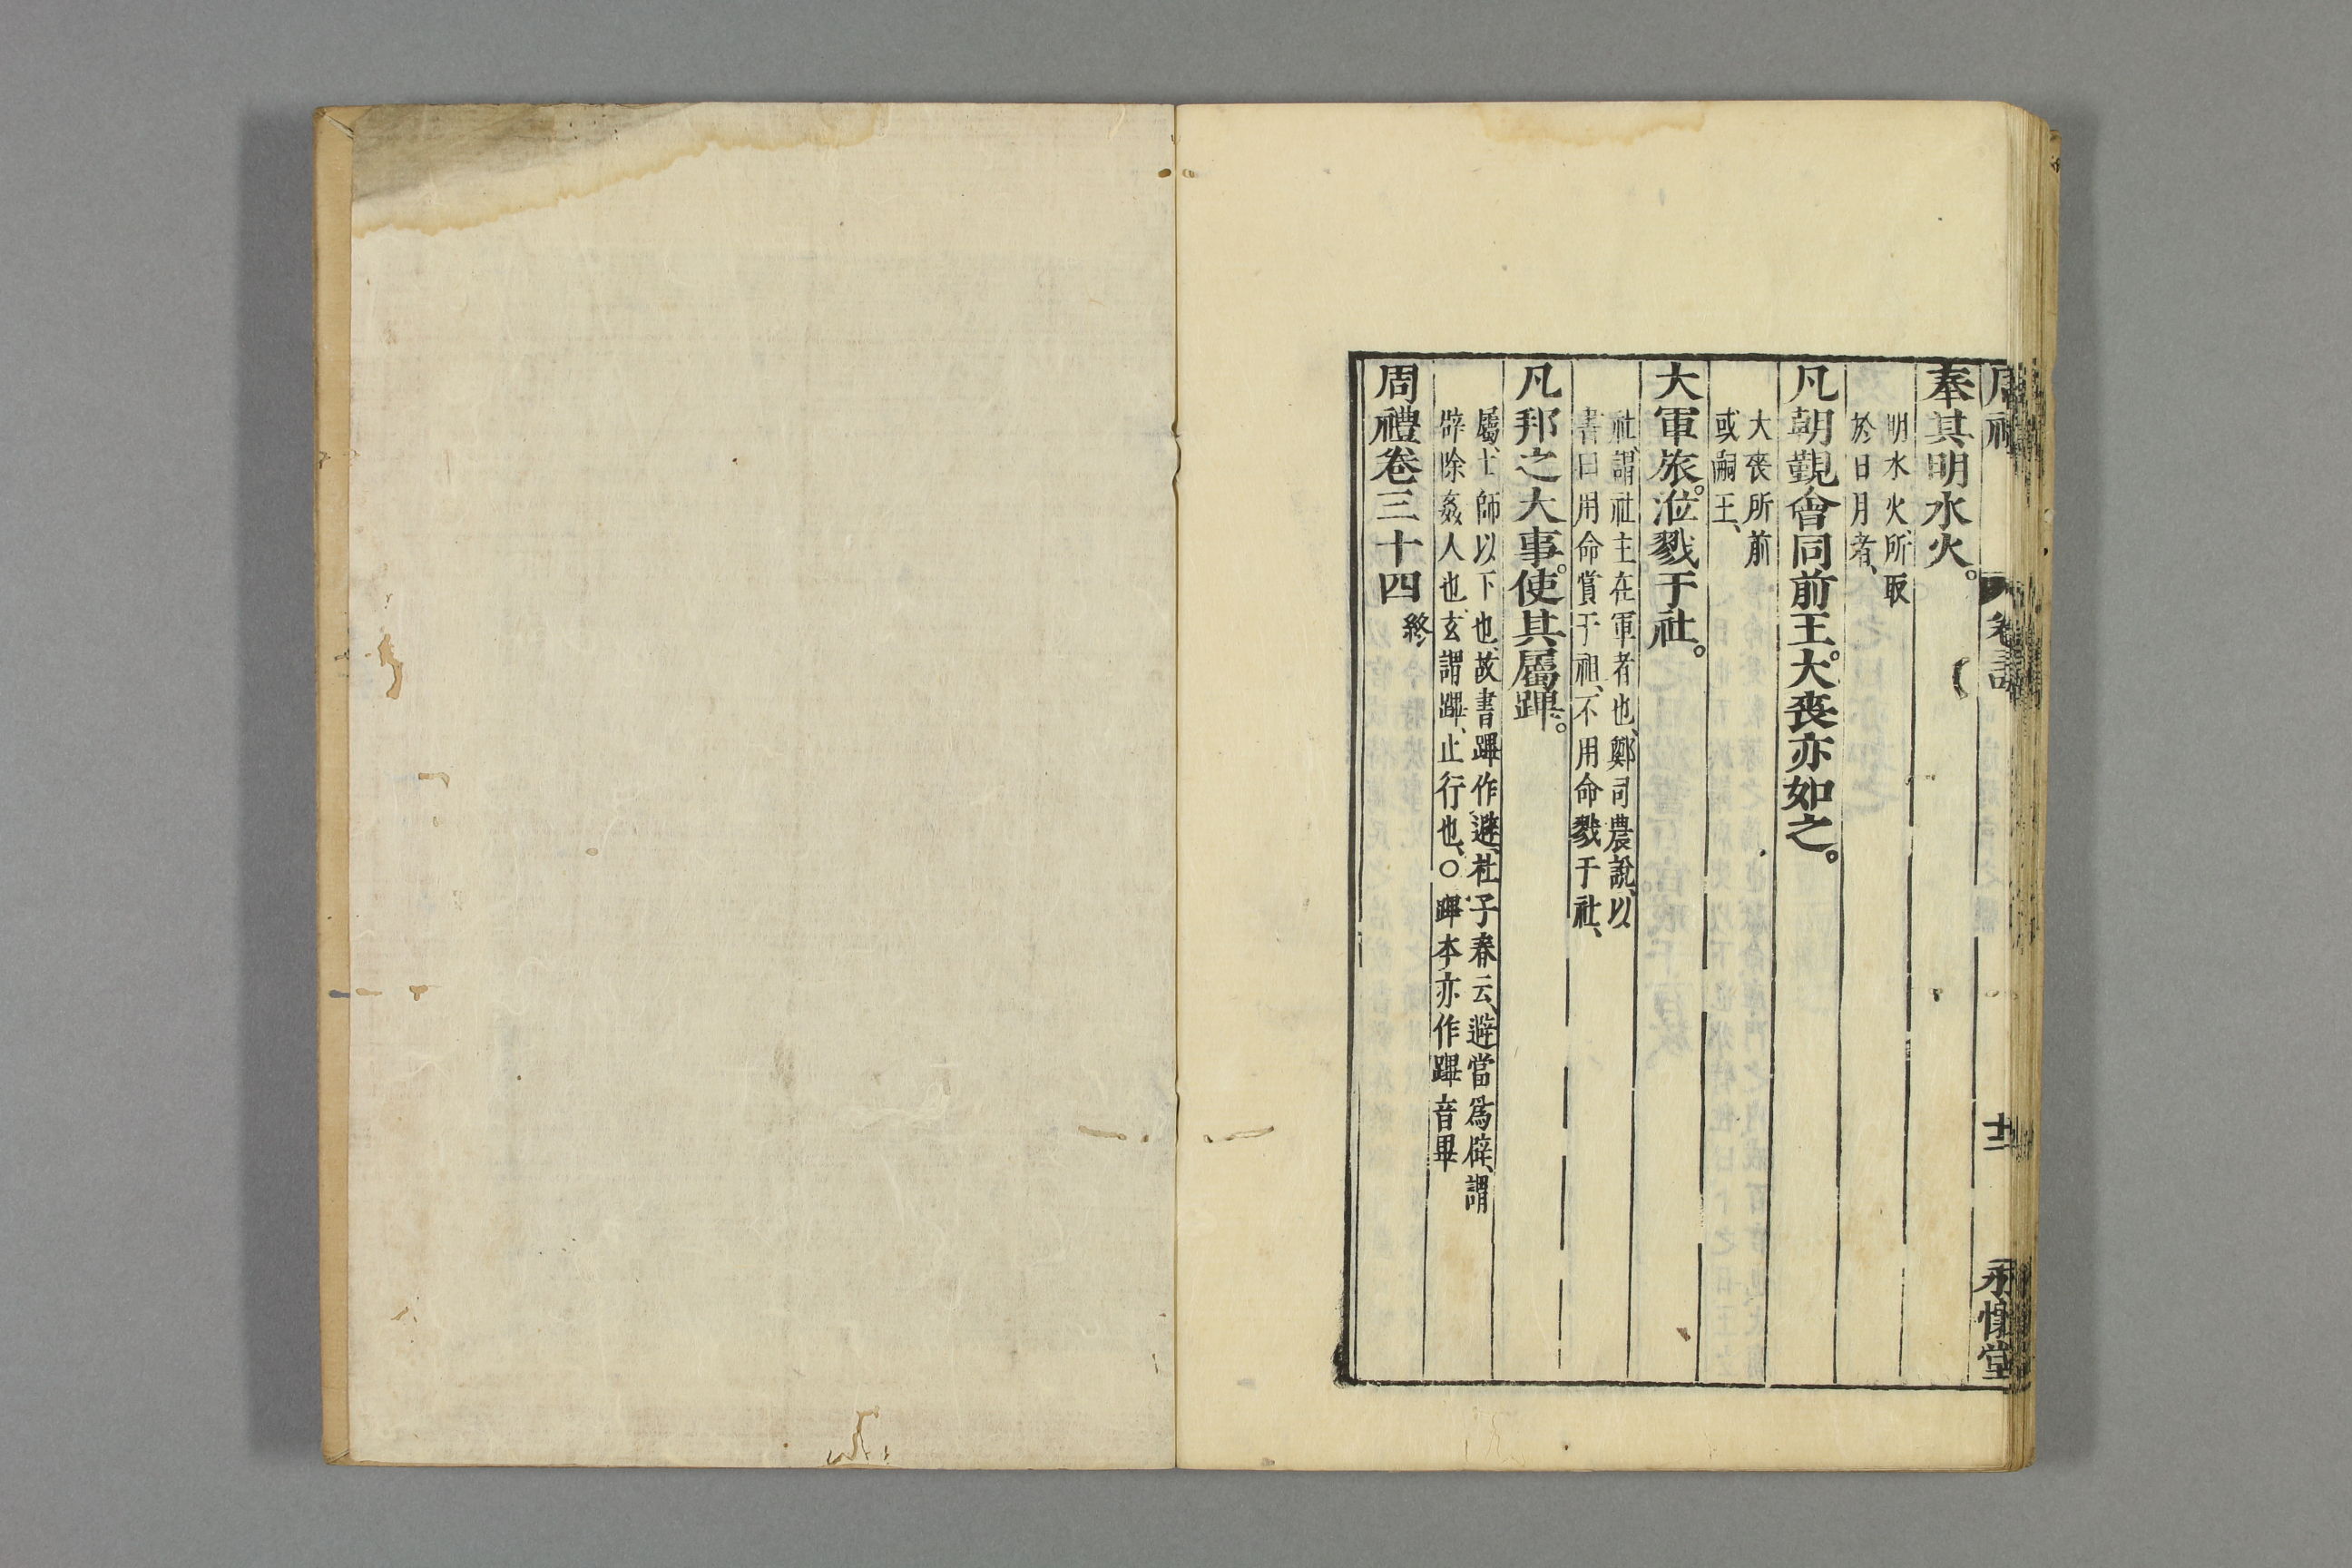 周禮
卷三十四
十二
永懷堂
奉其明水火。
明水火、所取
於日月者、
凡朝覲會同前王。大喪亦如之。
大喪所前
或嗣王、
大軍旅。涖戮于社。
社、謂社主在軍者也、鄭司農說、以
書曰用命賞于祖、不用命戮于社、
凡邦之大事。使其屬蹕。
屬、士師以下也、故書蹕作避、杜子春云、避當爲辟、謂
辟除姦人也、玄謂蹕、止行也、○蹕本亦作䟆音畢
周禮卷三十四終